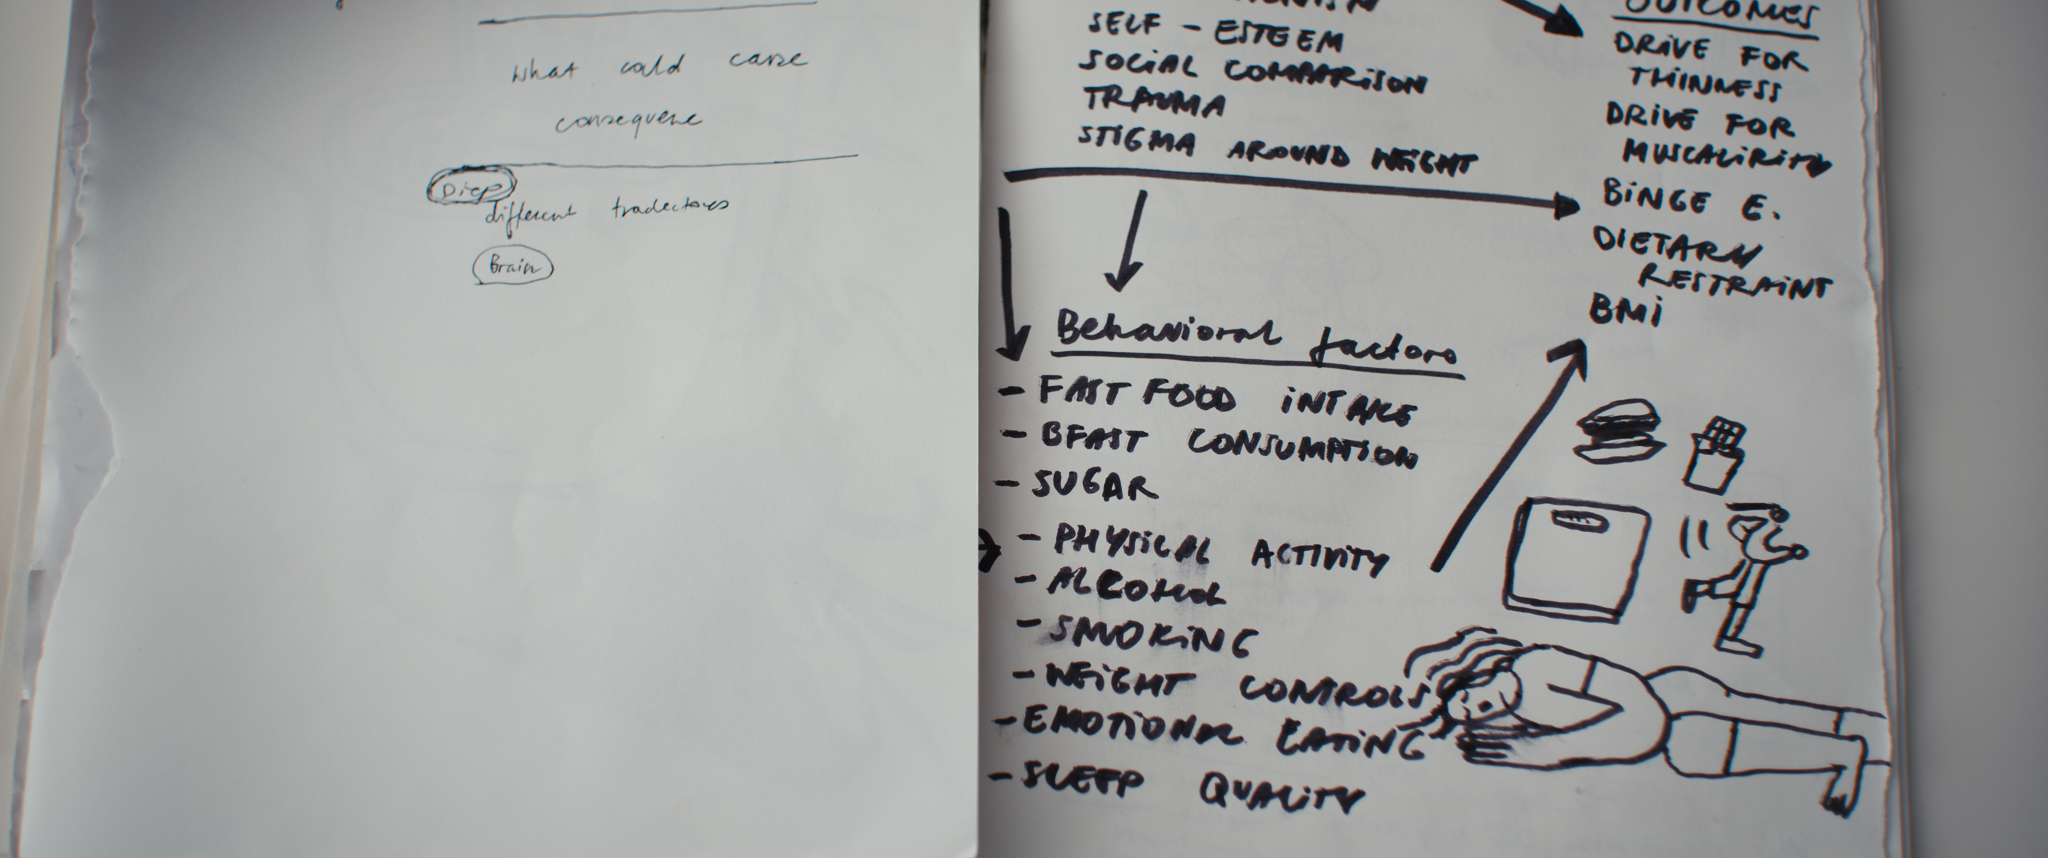 what could cause
consequence
different tradectores
Brain
SELF - ESTEEM
SOCIAL COMPARISON
TRAUMA
STIGMA AROUND WEIGHT
OUTCOMES
DRIVE FOR
THINNESS
DRIVE FOR
MUSCALIRITY
BINGE E.
DIETARY
RESTRAINT
BMI
Behavioral factors
- FAST FOOD INTAKE
- BFAST CONSUMATION
- SUGAR
- PHYSICAL ACTIVITY
- ALCOHOL
- SMOKING
- WEIGHT CONTROLS
- EMOTIONAL EATING
- SLEEP QUALITY